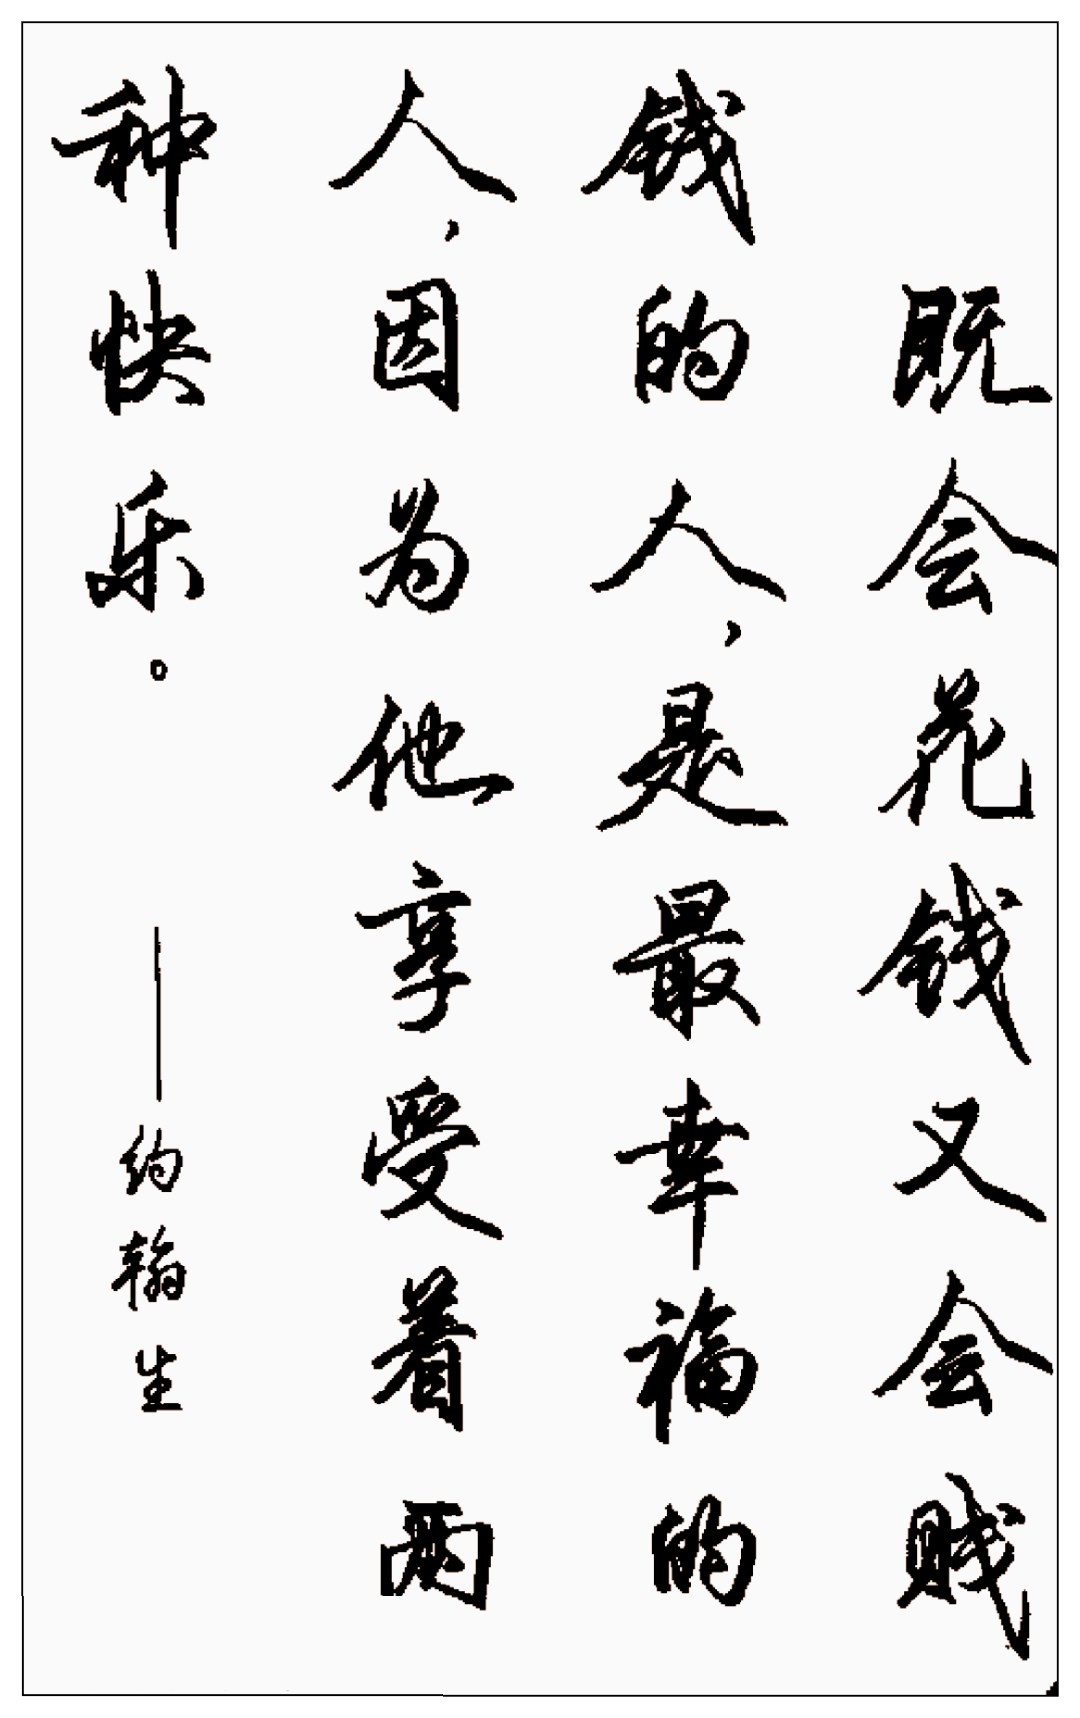 既会花钱又会贱
钱的人，是最幸福的
人，因为他享受着两
种快乐。
——约翰生